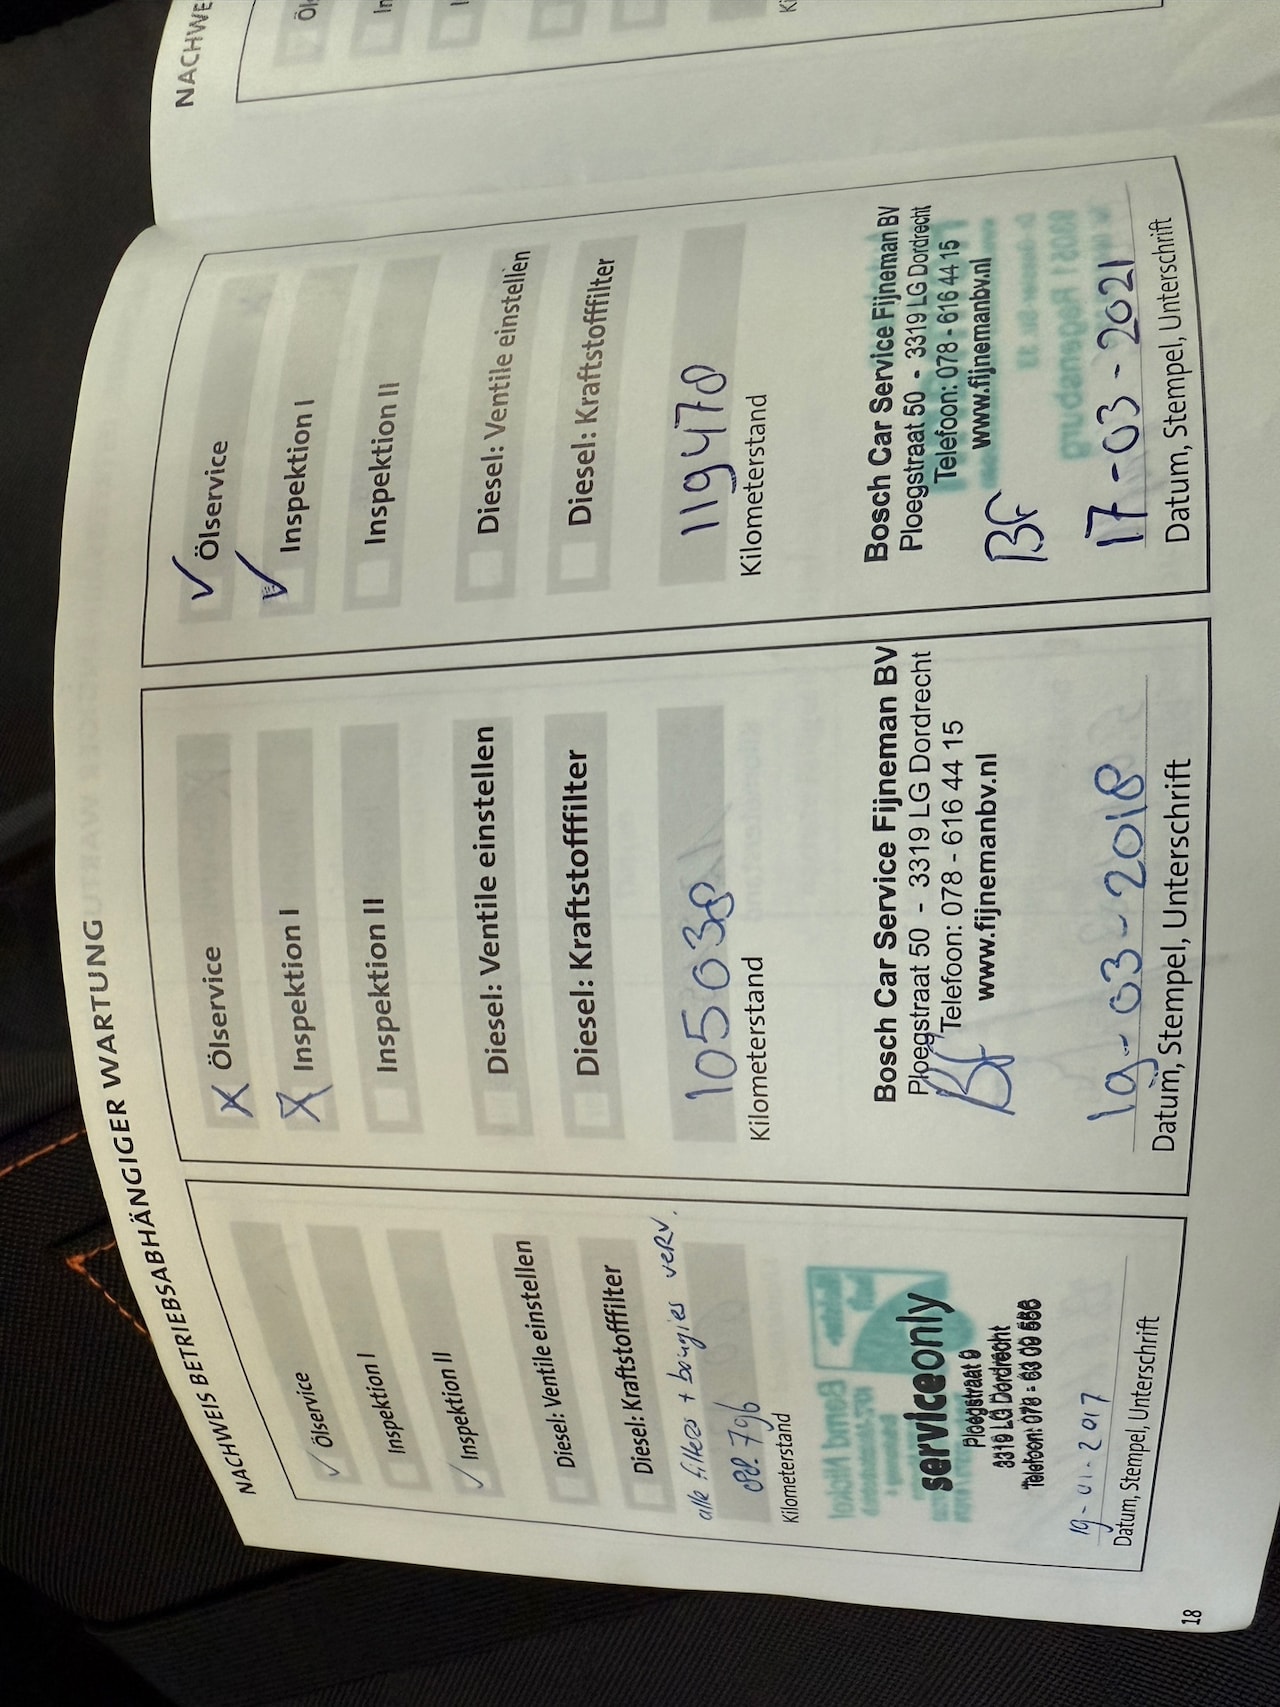 NACHWEIS BETRIEBSABHÄNGIGER WARTUNG
✓ Ölservice
Inspektion I
✓ Inspektion II
Diesel: Ventile einstellen
Diesel: Kraftstofffilter
alle filters + bougies verv.
796
Kilometerstand
serviceonly
Ploegstraat 9
3319 LG Dordrecht
Telefoon: 078 - 63 09 666
19-01-2017
Datum, Stempel, Unterschrift
X Ölservice
X Inspektion I
Inspektion II
Diesel: Ventile einstellen
Diesel: Kraftstofffilter
105038
Kilometerstand
Bosch Car Service Fijneman BV
Ploegstraat 50 - 3319 LG Dordrecht
Telefoon: 078 - 616 44 15
www.fijnemanbv.nl
BF
19-03-2018
Datum, Stempel, Unterschrift
✓ Ölservice
✓ Inspektion I
Inspektion II
Diesel: Ventile einstellen
Diesel: Kraftstofffilter
119478
Kilometerstand
Bosch Car Service Fijneman BV
Ploegstraat 50 - 3319 LG Dordrecht
Telefoon: 078 - 616 44 15
www.fijnemanbv.nl
BF
17-03-2021
Datum, Stempel, Unterschrift
18
NACHWE